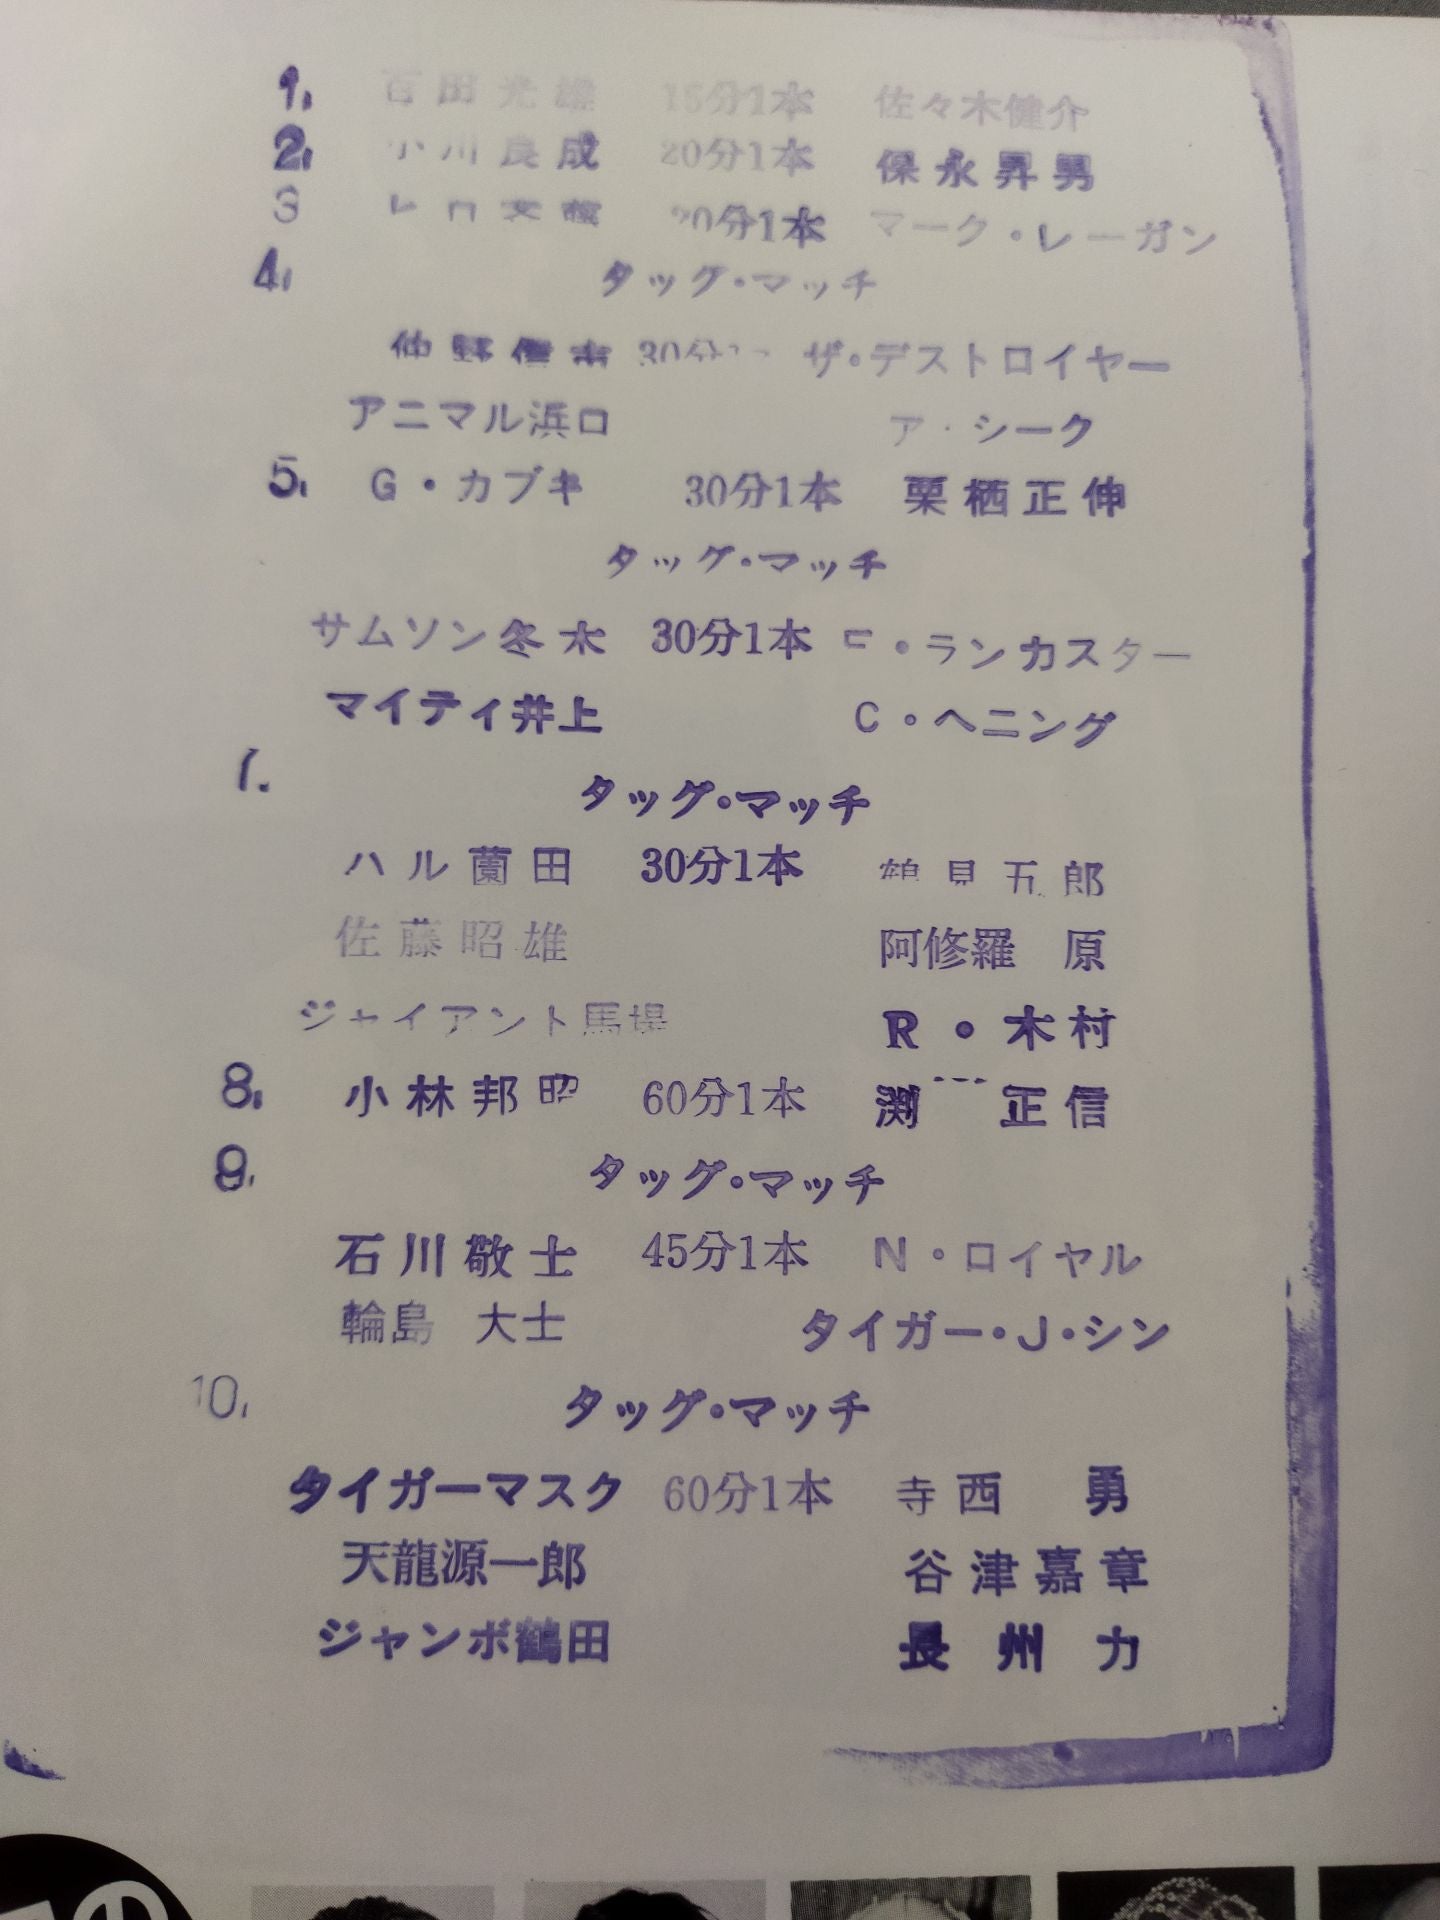 1. 百田光雄 15分1本 佐々木健介
2. 小川良成 20分1本 保永昇男
3 20分1本 マーク・レーガン
4. タッグ・マッチ
仲野信市 30分1本 ザ・デストロイヤー
アニマル浜口 ア・シーク
5. G・カブキ 30分1本 栗栖正伸
タッグ・マッチ
サムソン冬木 30分1本 ・ランカスター
マイティ井上 C・ヘニング
7. タッグ・マッチ
ハル薗田 30分1本 鶴見五郎
佐藤昭雄 阿修羅 原
ジャイアント馬場 R・木村
8. 小林邦昭 60分1本 渕 正信
9. タッグ・マッチ
石川敬士 45分1本 N・ロイヤル
輪島 大士 タイガー・J・シン
10. タッグ・マッチ
タイガーマスク 60分1本 寺西 勇
天龍源一郎 谷津嘉章
ジャンボ鶴田 長州力
の